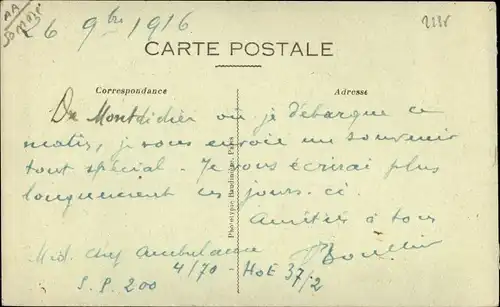 26 9bre 1916
CARTE POSTALE
Correspondance
Adresse
De Montdidier où je débarque ce
matin, je vous envoie un souvenir
tout spécial. Je vous écrirai plus
longuement ces jours-ci.
Amitiés à tous
Méd. chef Ambulance
4/70 - HoE 37/2
S.P. 200
Phototypie Baudinière, Paris